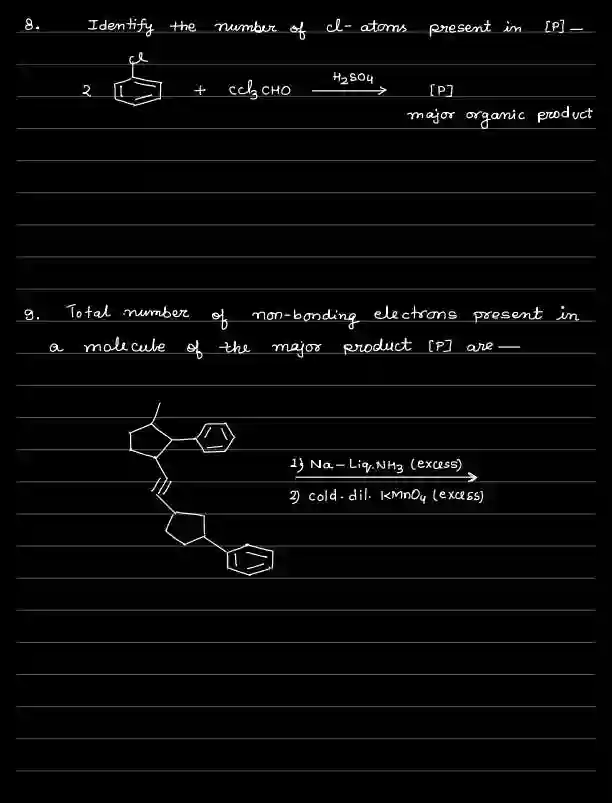 8. Identify the number of cl- atoms present in [P] —
cl
2 + ccl3 CHO H2SO4 [P]
major organic product
9. Total number of non-bonding electrons present in
a molecule of the major product [P] are —
1) Na - Liq. NH3 (excess)
2) cold. dil. KMnO4 (excess)